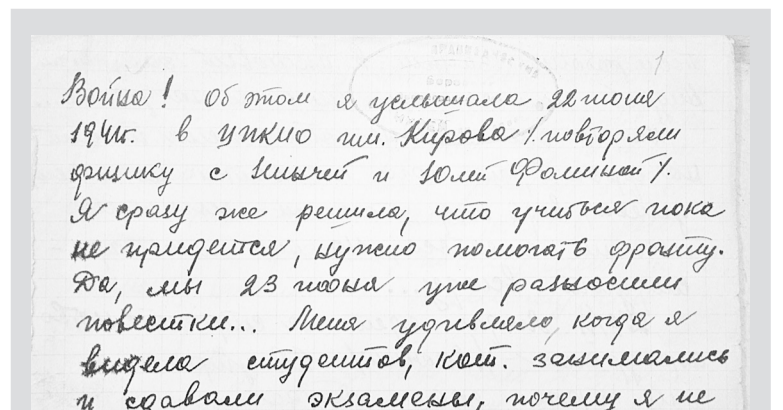 1
Война! Об этом я услышала 22 июня
1941г. в ЦПКиО им. Кирова /повторяли
физику с Нинчей и Юлей Фоминой/.
Я сразу же решила, что учиться пока
не придется, нужно помогать фронту.
Да, мы 23 июня уже разносили
повестки... Меня удивляло, когда я
видела студентов, кот. занимались
и сдавали экзамены, почему я не